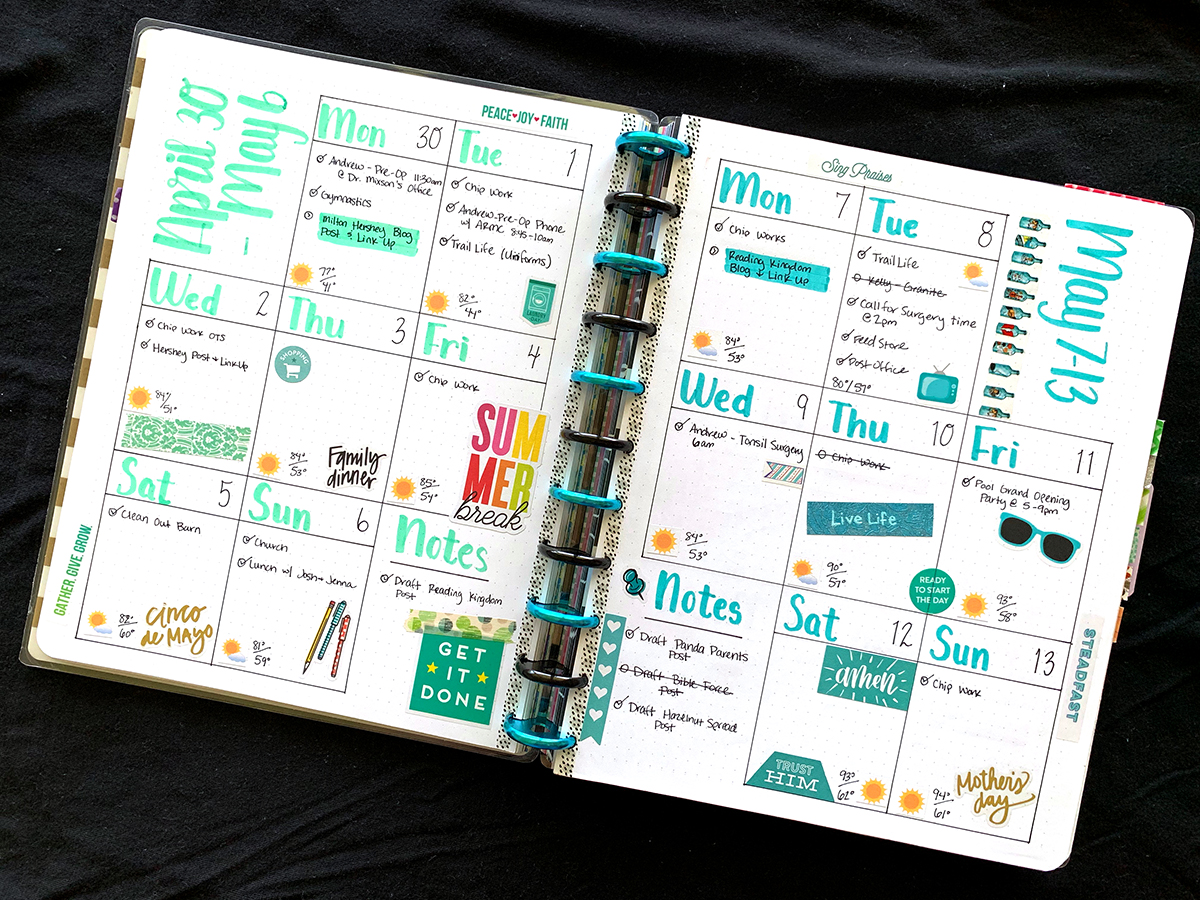 April 30
- May 6
PEACE♥JOY♥FAITH
Mon 30
Andrew - Pre-Op 11:30am
@ Dr. Mixson's Office
Gymnastics
Milton Hershey Blog
Post & Link Up
77°
41°
Tue 1
Chip Work
Andrew-Pre-Op Phone
w/ ARMC 8:45-10am
Trail Life (Uniforms)
82°
44°
LAUNDRY
Wed 2
Chip Work OTS
Hershey Post & Link Up
84°
51°
Thu 3
SHOPPING
84°
53°
Family
dinner
Fri 4
Chip Work
85°
54°
SUM
MER
break
Sat 5
Clean Out Barn
88°
60°
CINCO
de MAYO
Sun 6
Church
Lunch w/ Josh & Jenna
81°
59°
Notes
Draft Reading Kingdom
Post
GET
IT
DONE
GATHER. GIVE. GROW.
Sing Praises
May 7-13
Mon 7
Chip Works
Reading Kingdom
Blog & Link Up
84°
53°
Tue 8
Trail Life
Kelly - Granite
Call for Surgery time
@ 2pm
Feed Store
Post Office
80°/57°
Wed 9
Andrew - Tonsil Surgery
6am
84°
53°
Thu 10
Chip Work
Live Life
90°
57°
READY
TO START
THE DAY
Fri 11
Pool Grand Opening
Party @ 5-9pm
93°
58°
Notes
Draft Panda Parents
Post
Draft Bible Force
Post
Draft Hazelnut Spread
Post
Sat 12
amen
TRUST
HIM
93°
62°
Sun 13
Chip Work
94°
61°
Mother's
day
STEADFAST